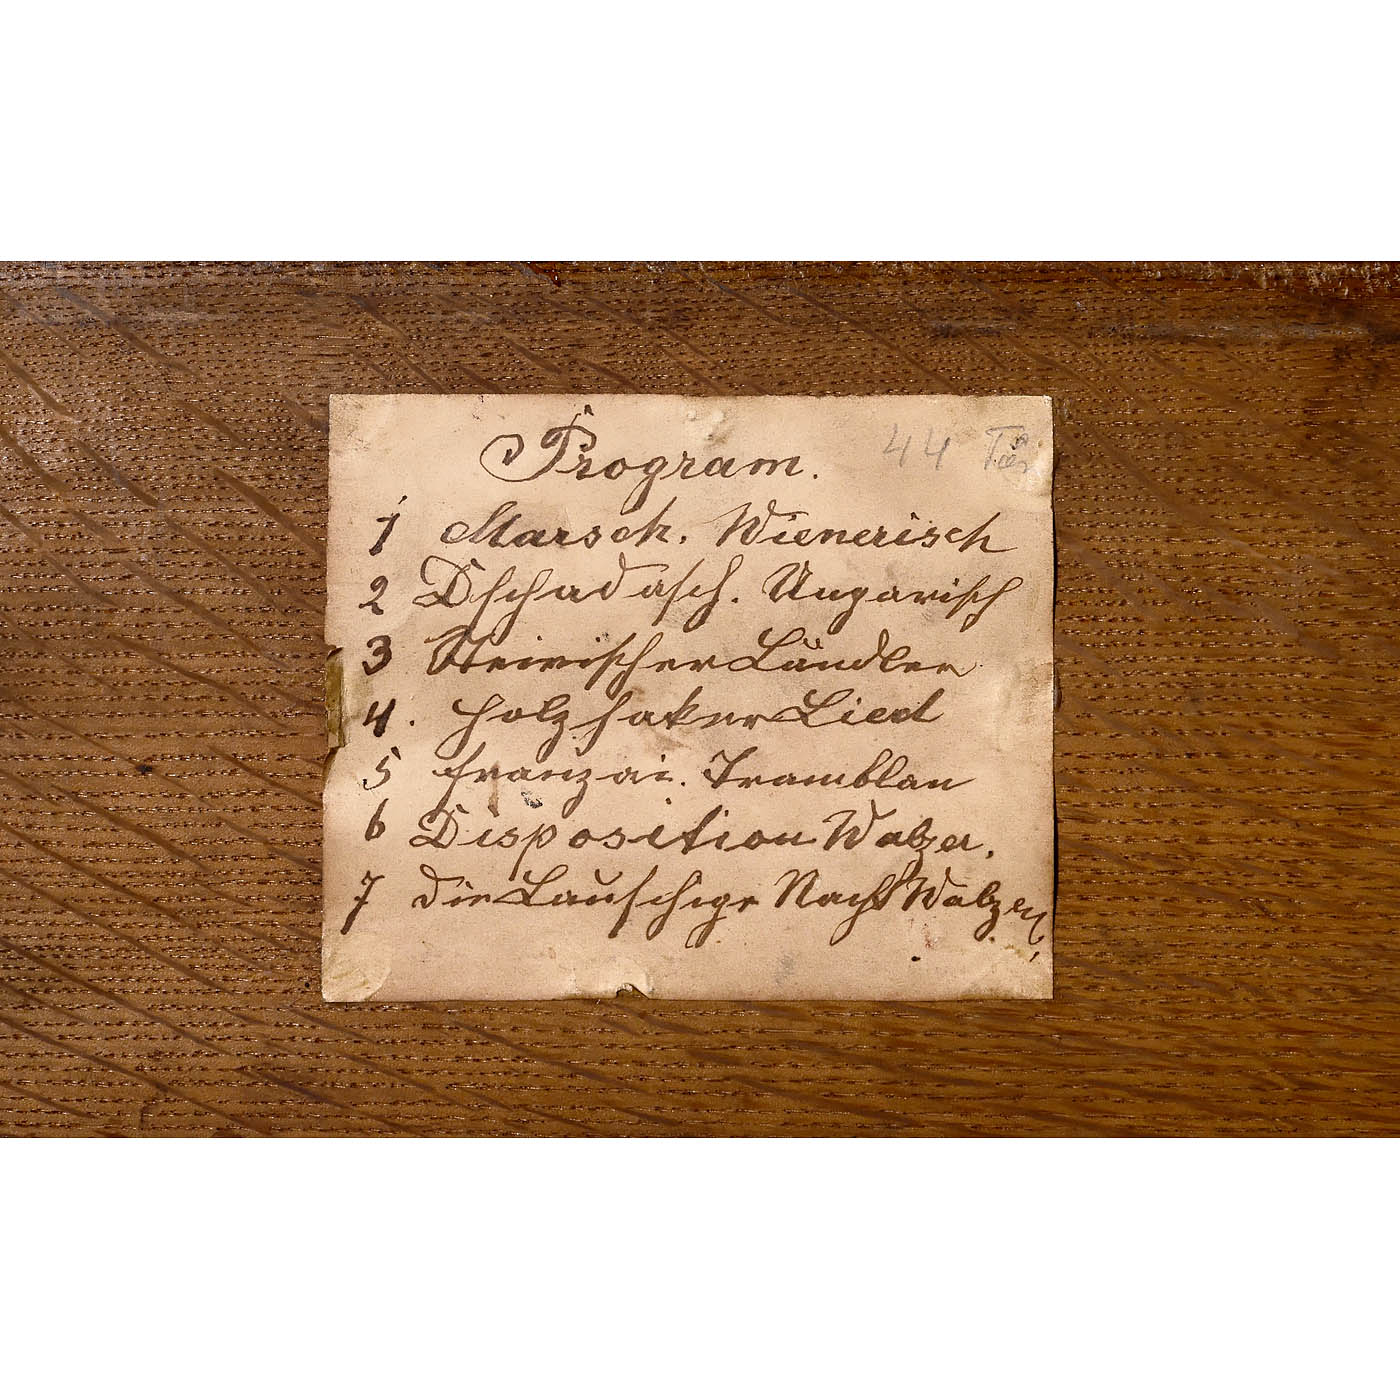 Program. 44
1 Marsch. Wienerisch
2 Dschadasch. Ungarisch
3 Steirischer Ländler
4. Holzhaker Lied
5 franzai. Tramblan
6 Disposition Walzer.
7 die Lauschige Nacht Walzer.